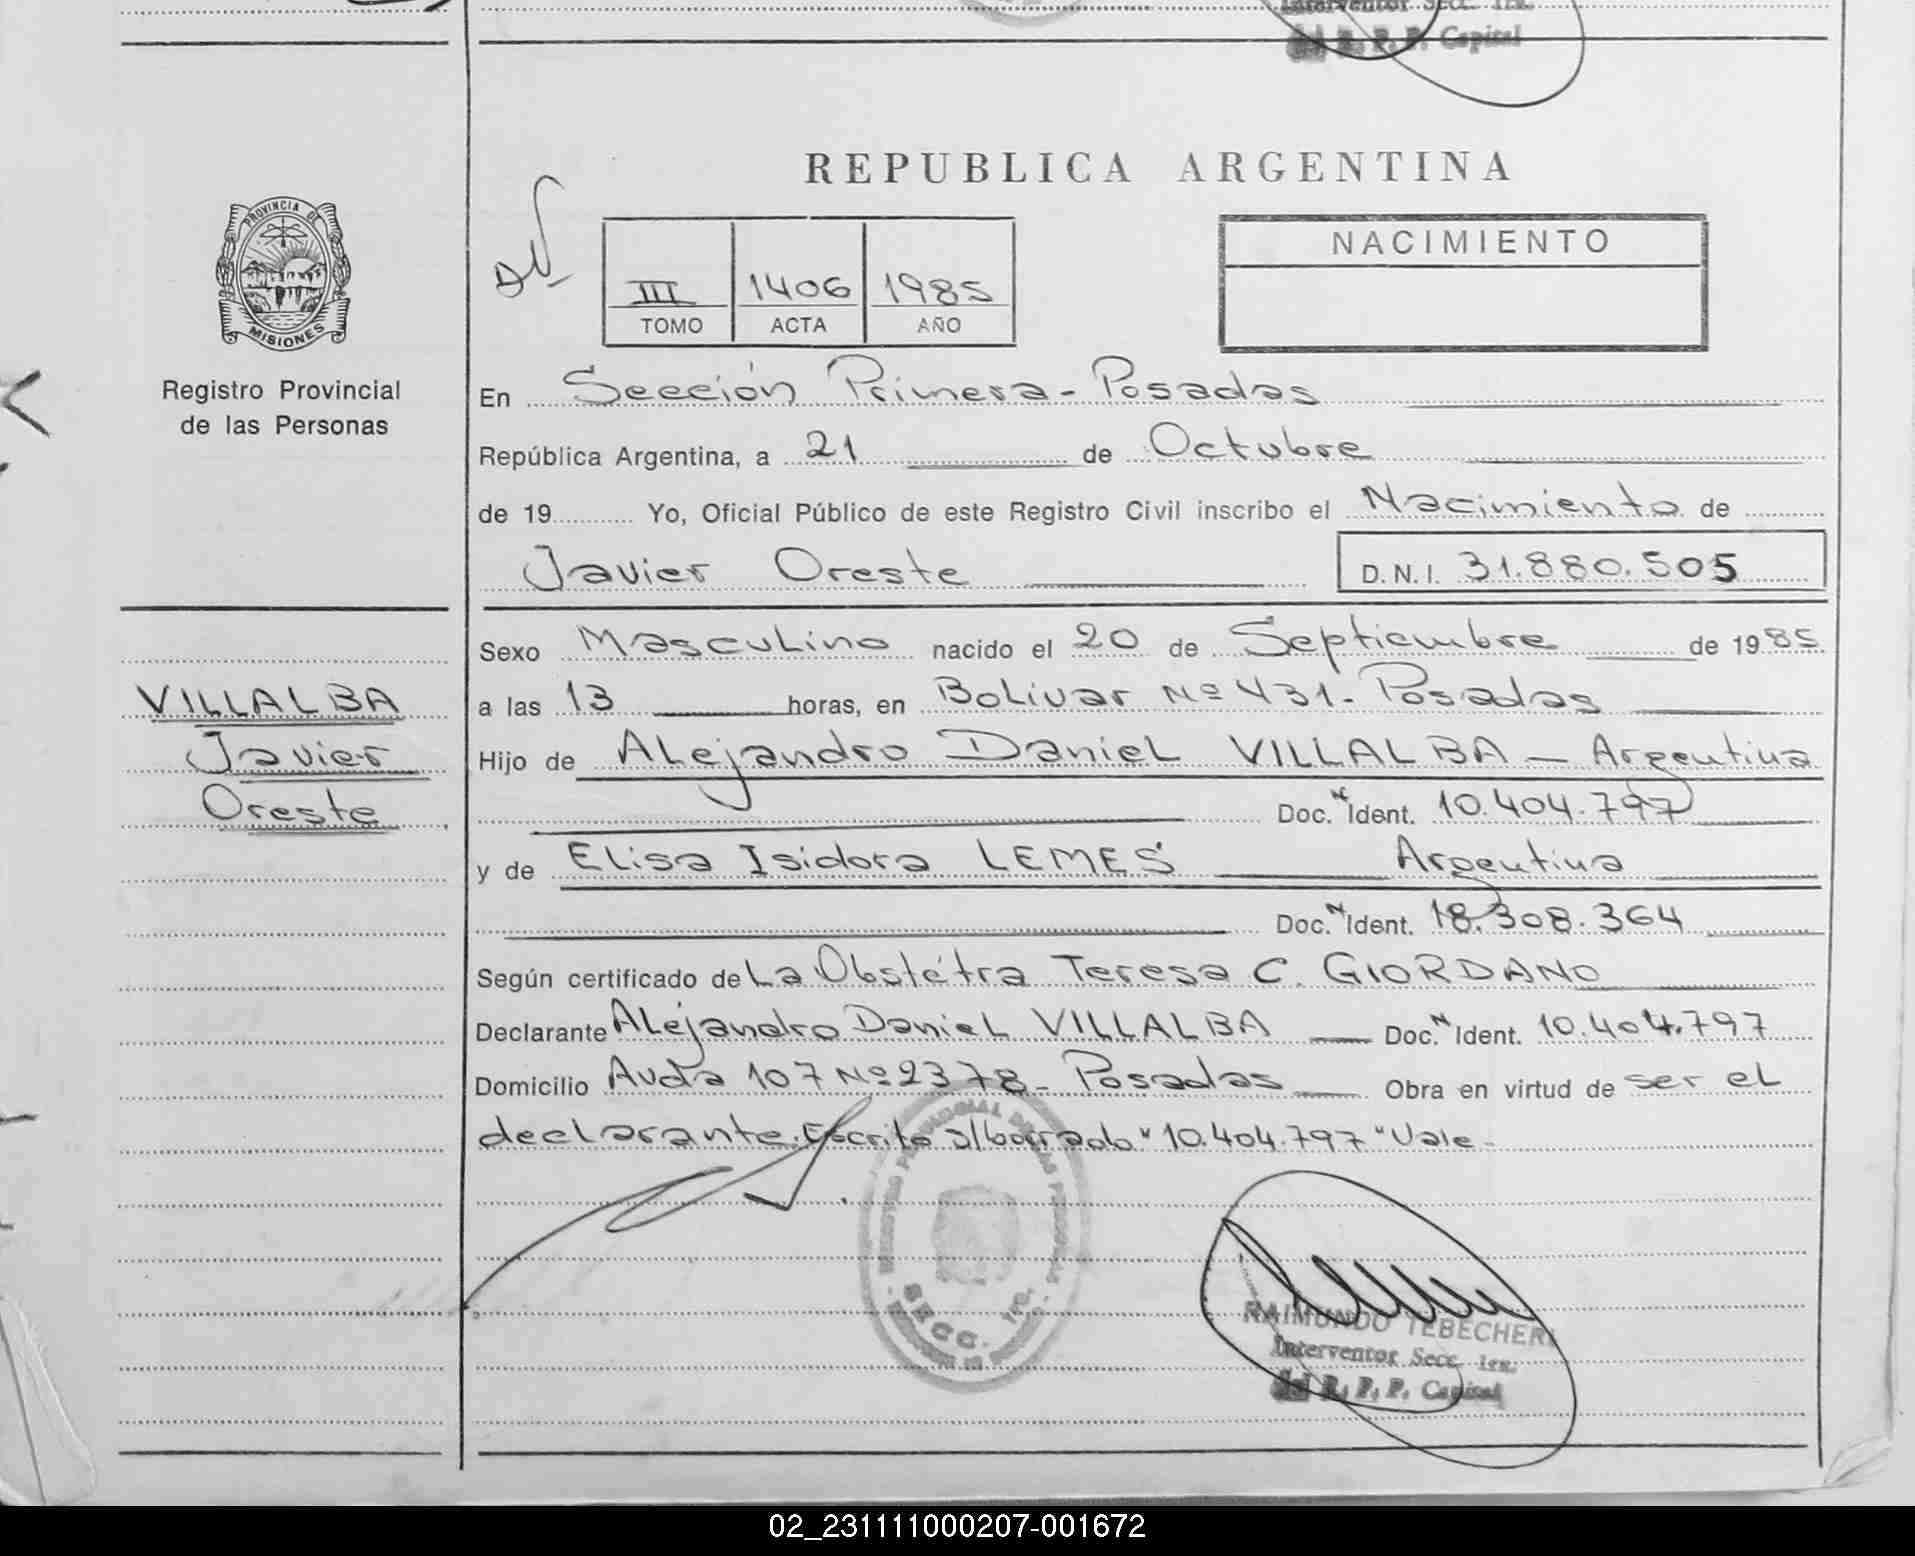 Interventor Secc. 1ra.
del R. P. P. Capital
REPUBLICA ARGENTINA
PROVINCIA DE
MISIONES
NACIMIENTO
III 1406 1985
TOMO ACTA AÑO
Registro Provincial
de las Personas
En Sección Primera - Posadas
República Argentina, a 21 de Octubre
de 19 Yo, Oficial Público de este Registro Civil inscribo el Nacimiento de
Javier Oreste D.N.I. 31.880.505
Sexo Masculino nacido el 20 de Septiembre de 1985
VILLALBA
Javier
Oreste
a las 13 horas, en Bolivar Nº 431 - Posadas
Hijo de Alejandro Daniel VILLALBA — Argentina
Doc. N Ident. 10.404.797
y de Elisa Isidora LEMES Argentina
Doc. N Ident. 18.308.364
Según certificado de La Obstétra Teresa C. GIORDANO
Declarante Alejandro Daniel VILLALBA — Doc. N Ident. 10.404.797
Domicilio Avda 107 Nº 2378 - Posadas — Obra en virtud de ser el
declarante. Escrito s/borrado "10.404.797" Vale -
REGISTRO PROVINCIAL DE LAS PERSONAS
SECC. 1ra.
RAIMUNDO TEBECHERI
Interventor Secc. 1ra.
del R. P. P. Capital
02_231111000207-001672